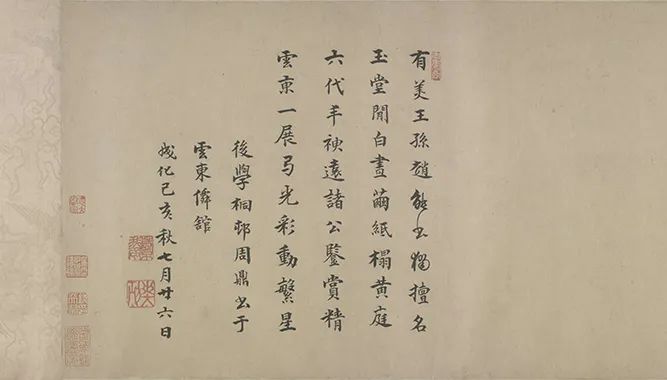 有美王孫趙能书獨擅名
玉堂閒白晝繭紙搨黃庭
六代遠諸公鑒賞精
雲東一展弓光彩動繁星
後學桐邨周鼎书于
雲東僊館
成化己亥秋七月廿六日